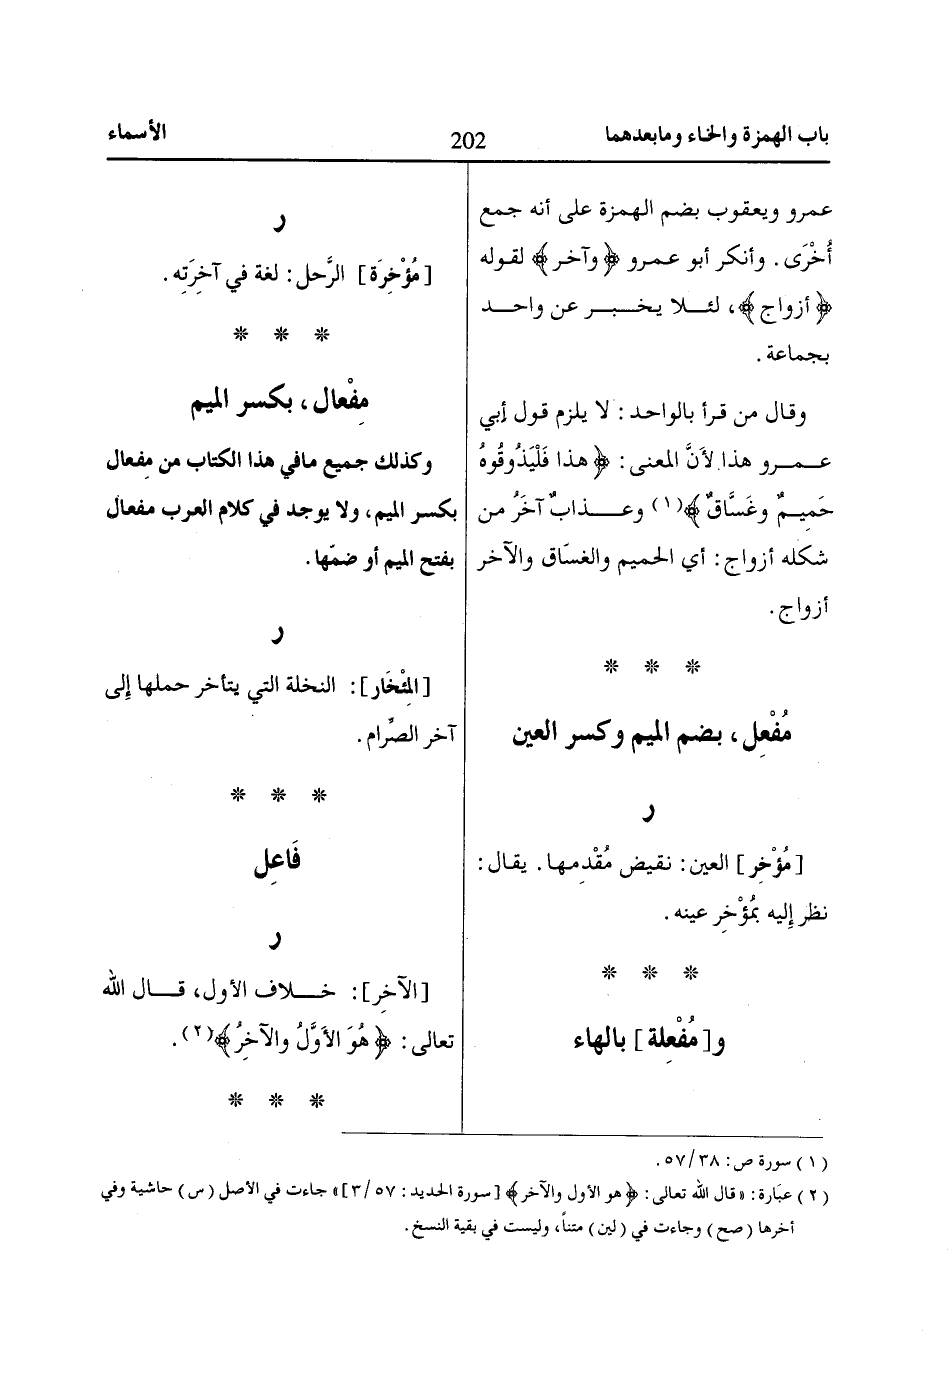 باب الهمزة والخاء ومابعدهما
202
الأسماء
عمرو ويعقوب بضم الهمزة على أنه جمع
أُخْرَى. وأنكر أبو عمرو ﴿وآخر﴾ لقوله
﴿أزواج﴾، لئلا يخبر عن واحد
بجماعة.
وقال من قرأ بالواحد: لا يلزم قول أبي
عمرو هذا لأنَّ المعنى: ﴿هذا فَلْيَذُوقُوهُ
حَمِيمٌ وغَسَّاقٌ﴾(١) وعذابٌ آخَرُ من
شكله أزواج: أي الحميم والغسّاق والآخر
أزواج.
* * *
مُفْعِل، بضم الميم وكسر العين
ر
[مُؤْخِر] العين: نقيض مُقْدِمها. يقال:
نظر إليه بمُؤْخِر عينه.
* * *
و[مُفْعِلة] بالهاء
ر
[مُؤْخِرَة] الرَّحل: لغة في آخِرَتِه.
* * *
مِفْعال، بكسر الميم
وكذلك جميع مافي هذا الكتاب من مفعال
بكسر الميم، ولا يوجد في كلام العرب مفعال
بفتح الميم أو ضمّها.
ر
[المِئْخَار]: النخلة التي يتأخر حملها إلى
آخر الصِّرام.
* * *
فَاعِل
ر
[الآخِر]: خلاف الأول، قال الله
تعالى: ﴿هُوَ الأَوَّلُ والآخِرُ﴾(٢).
* * *
(١) سورة ص: ٥٧/٣٨.
(٢) عبَارة: «قال الله تعالى: ﴿هو الأول والآخر﴾ [سورة الحديد: ٣/٥٧]» جاءت في الأصل (س) حاشية وفي
أخرها (صح) وجاءت في (لين) متناً، وليست في بقية النسخ.